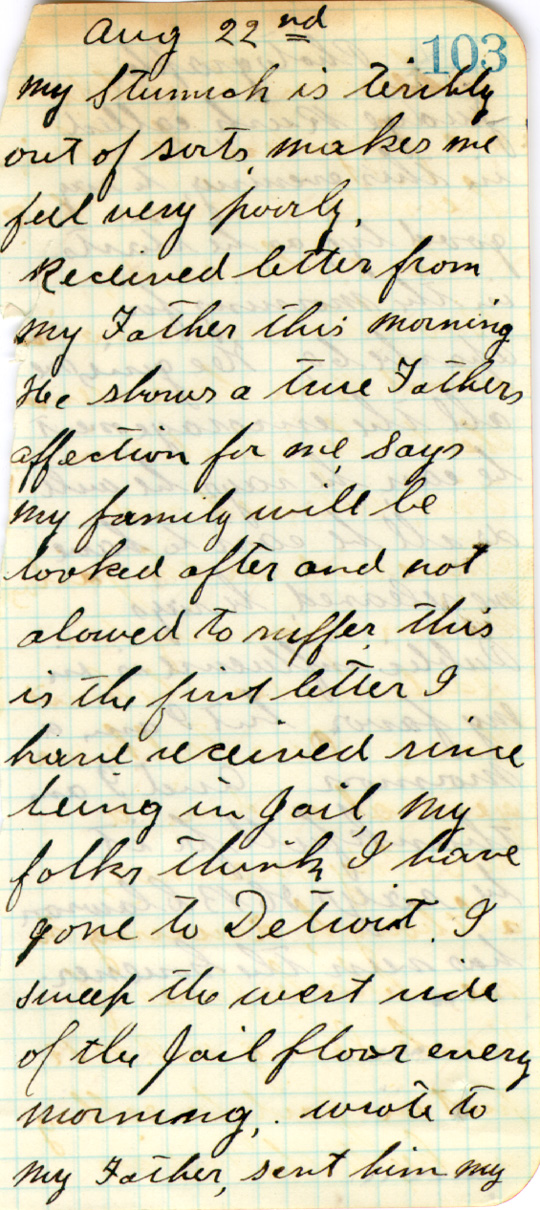 Aug 22nd
103
my Stumick is teribly
out of sorts, makes me
feel very poorly,
Received letter from
my Father this morning
He shows a true Fathers
affection for me, says
my family will be
looked after and not
alowed to suffer, this
is the first letter I
have received since
being in Jail, my
folks think I have
gone to Detroit. I
sweep the west side
of the Jail floor every
morning, wrote to
my Father, sent him my